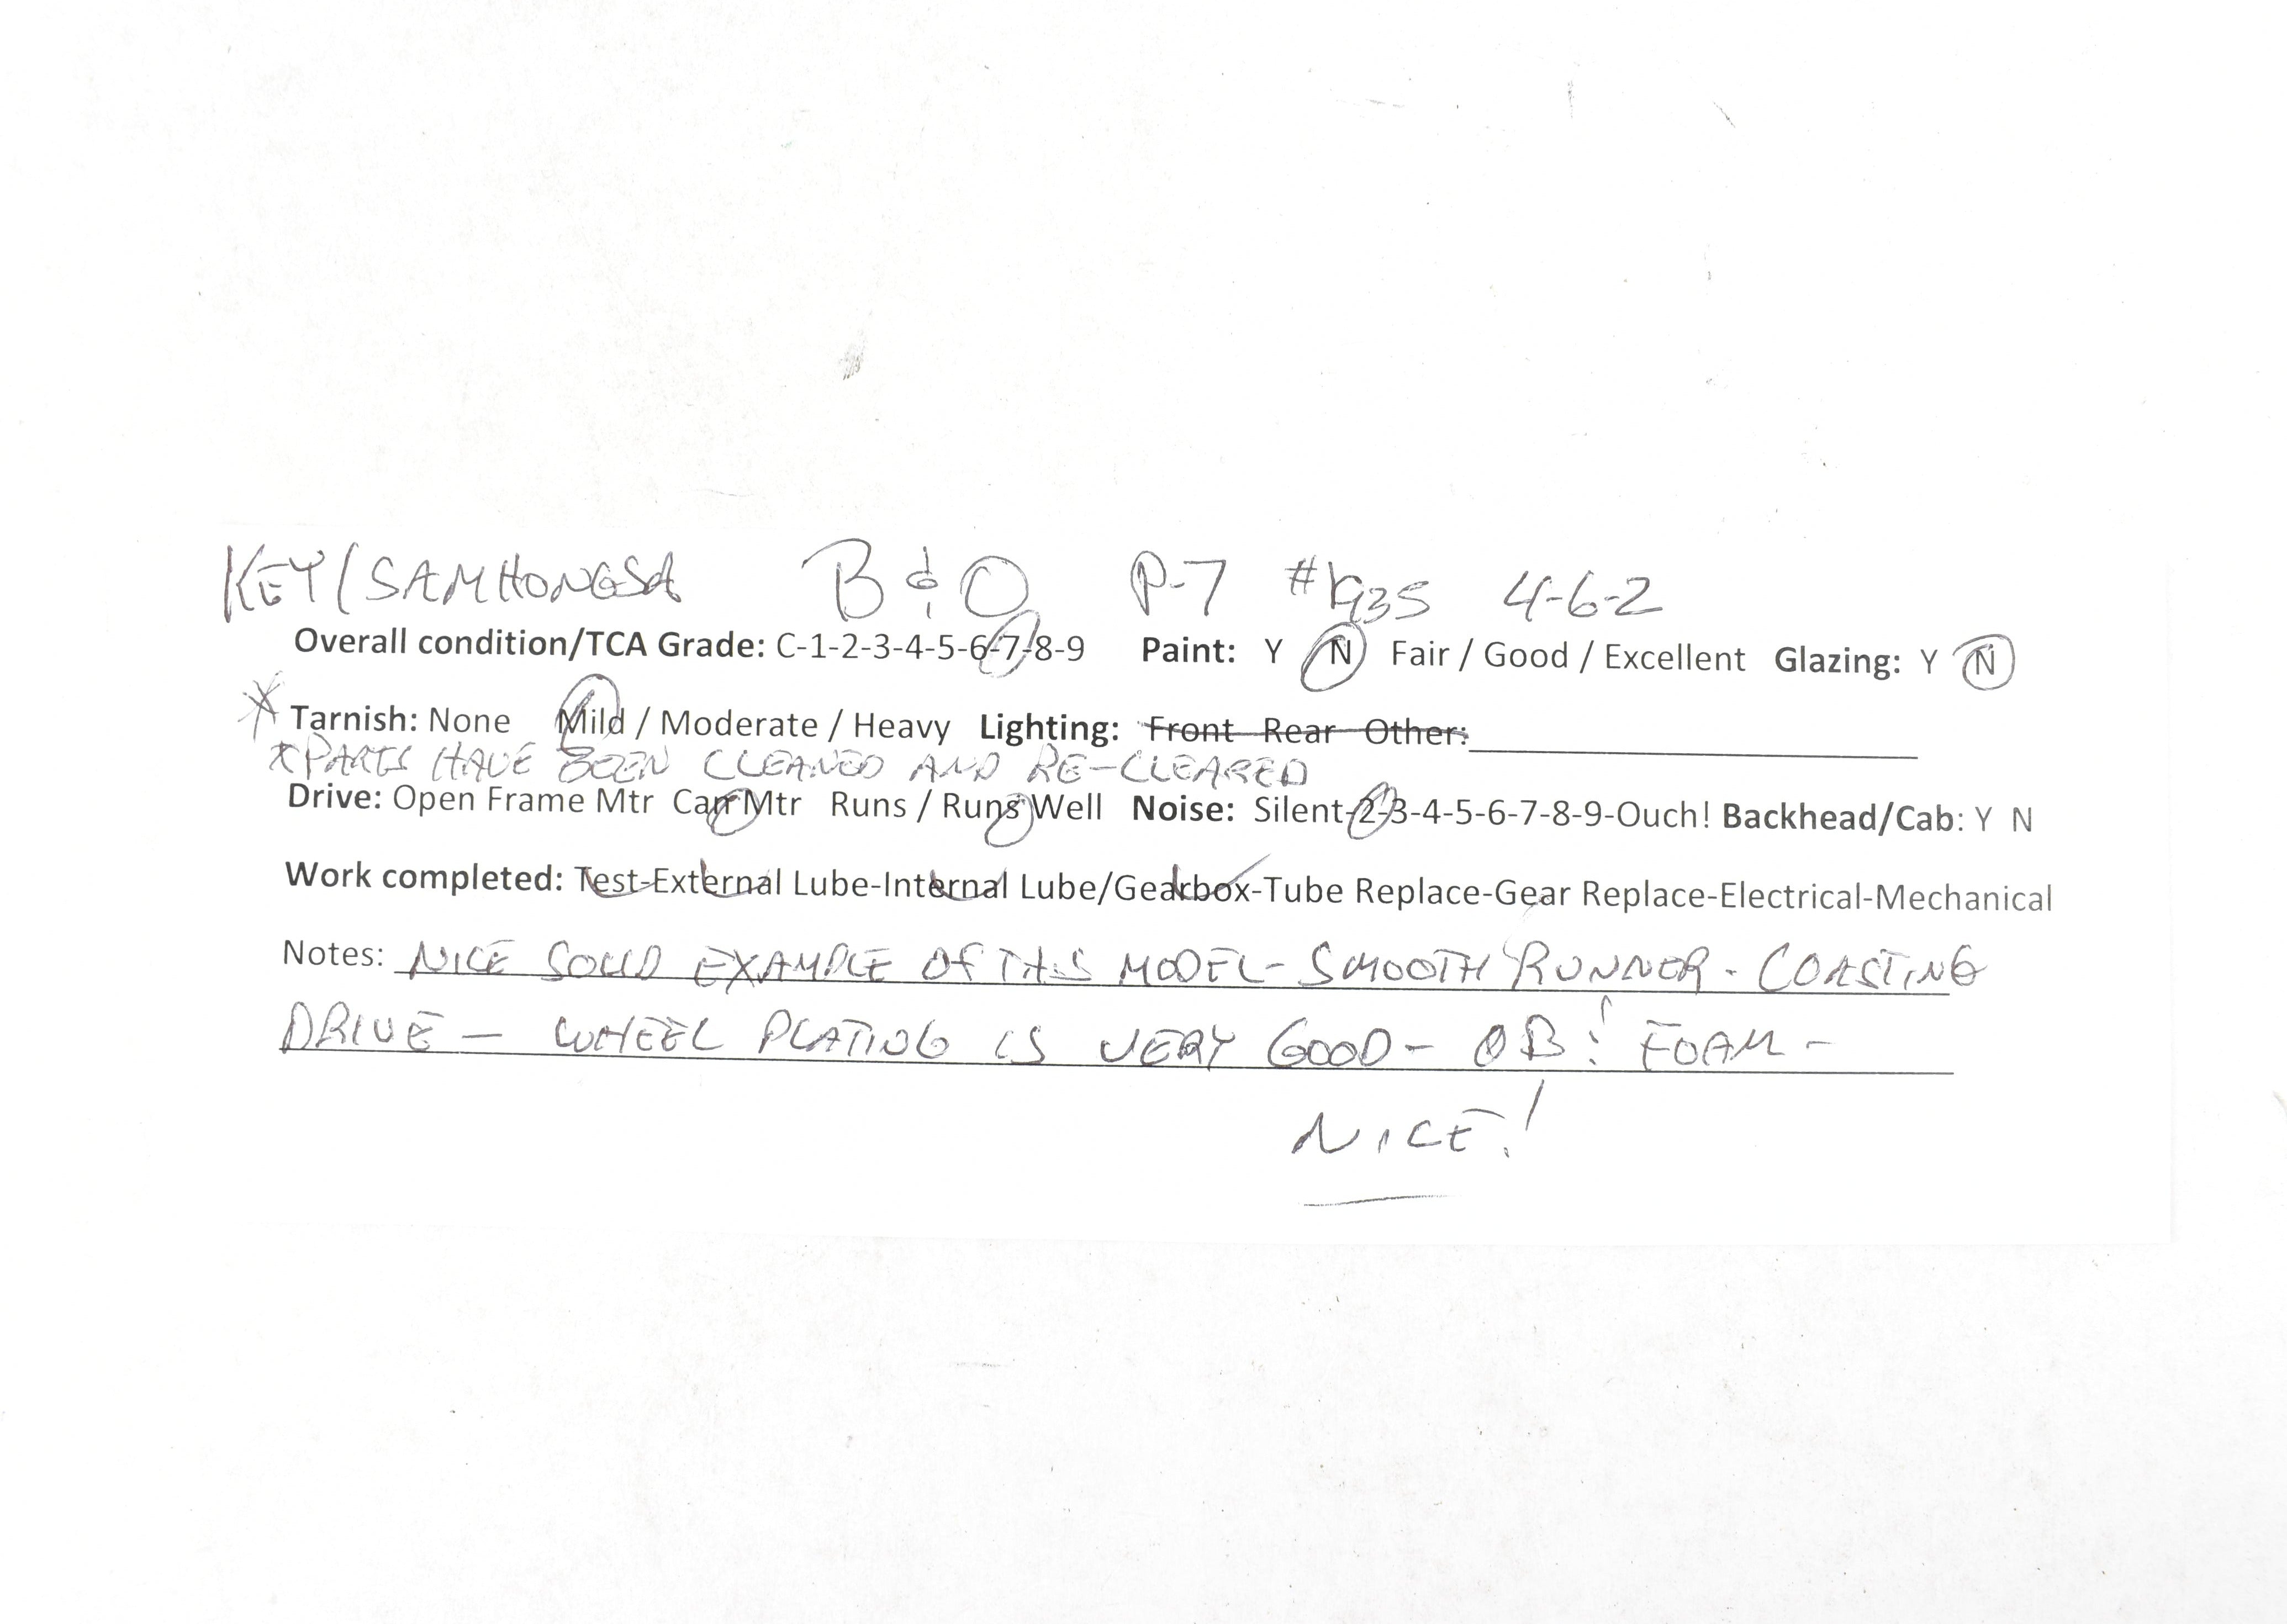 KEY/SAMHONGSA B & O P-7 #1935 4-6-2
Overall condition/TCA Grade: C-1-2-3-4-5-6-7-8-9 Paint: Y N Fair / Good / Excellent Glazing: Y N
* Tarnish: None Mild / Moderate / Heavy Lighting: Front Rear Other:
* PARTS HAVE BEEN CLEANED AND RE-CLEARED
Drive: Open Frame Mtr Can Mtr Runs / Runs Well Noise: Silent-2-3-4-5-6-7-8-9-Ouch! Backhead/Cab: Y N
Work completed: Test-External Lube-Internal Lube/Gearbox-Tube Replace-Gear Replace-Electrical-Mechanical
Notes: NICE SOLID EXAMPLE OF THIS MODEL- SMOOTH RUNNER - COASTING
DRIVE - WHEEL PLATING IS VERY GOOD - OB ! FOAM -
NICE!